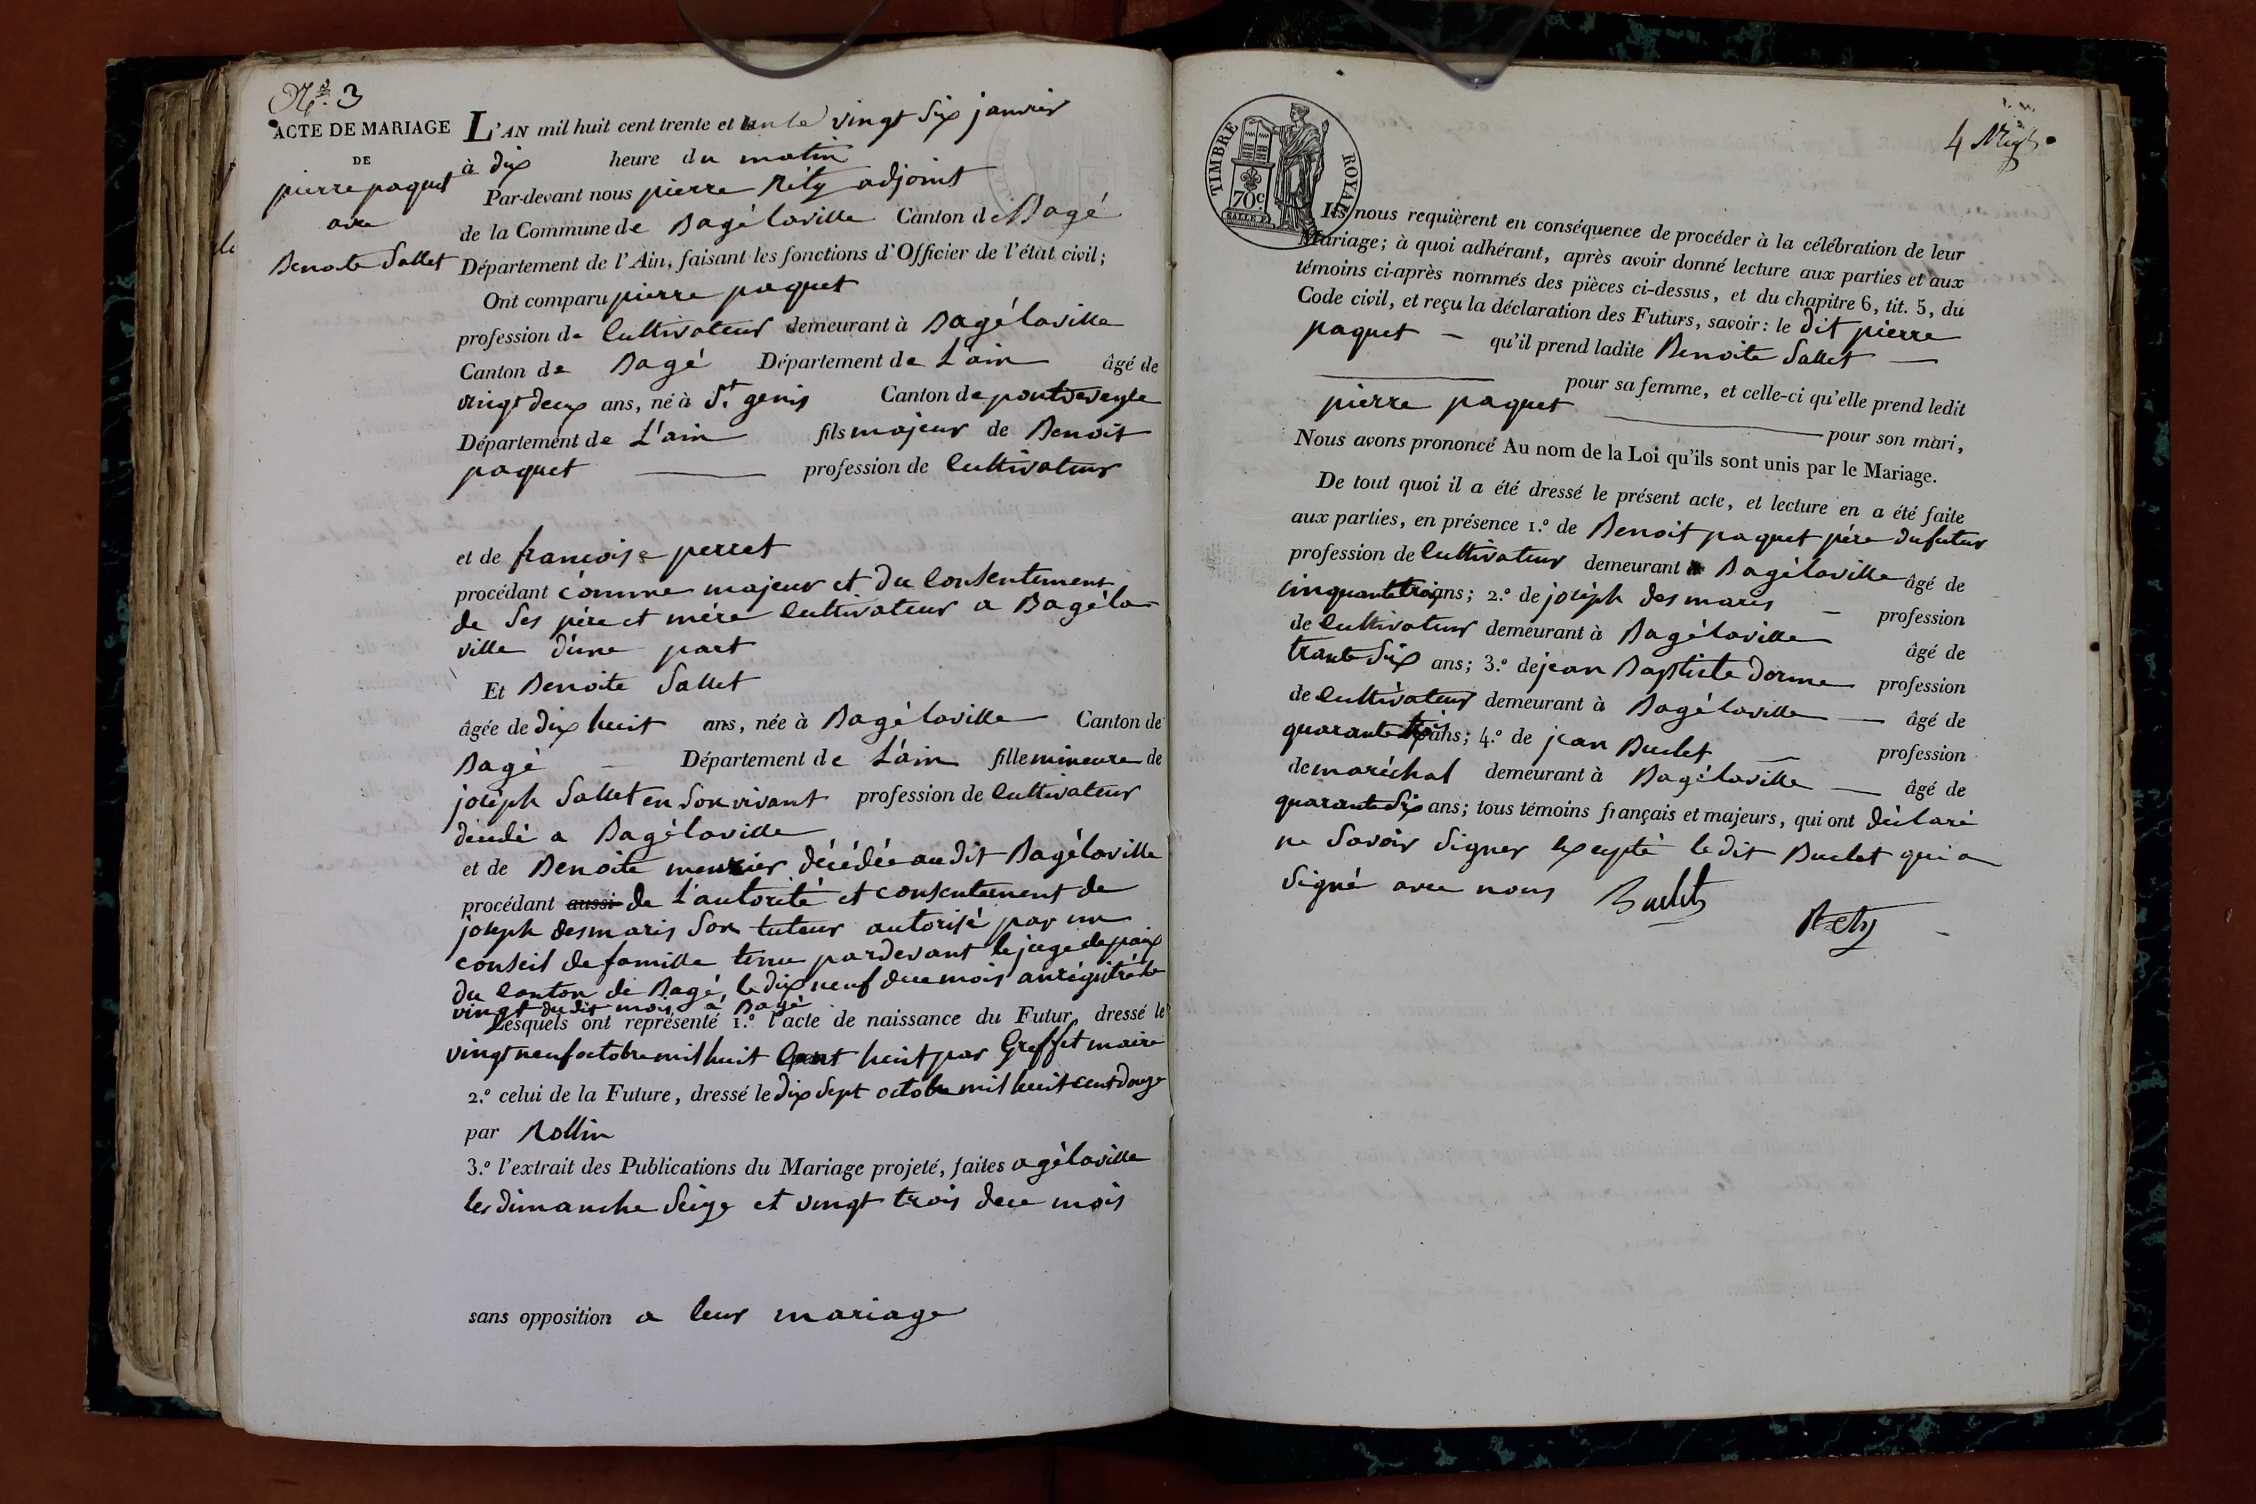 N.° 3
ACTE DE MARIAGE
DE
pierre paquet
avec
Benoite Sallet
L'AN mil huit cent trente et un le vingt six janvier
à dix heure du matin
Par-devant nous pierre Réty adjoint
de la Commune de Bagélaville Canton de Bagé
Département de l'Ain, faisant les fonctions d'Officier de l'état civil;
Ont comparu pierre paquet
profession de Cultivateur demeurant à Bagélaville
Canton de Bagé Département de L'ain âgé de
vingt deux ans, né à St. genis Canton de pontdeveyle
Département de L'ain fils majeur de Benoit
paquet profession de Cultivateur
et de francoise perret
procédant comme majeur et du Consentement
de Ses père et mère Cultivateur a Bagéla
ville d'une part
Et Benoite Sallet
âgée de dix huit ans, née à Bagélaville Canton de
Bagé Département de L'ain fille mineure de
joseph Sallet en Son vivant profession de Cultivateur
décédé a Bagélaville
et de Benoite meunier décédée audit Bagélaville
procédant aussi de L'autorité et consentement de
joseph desmaris Son tuteur autorisé par un
conseil de famille tenu pardevant le juge de paix
du Canton de Bagé, le dix neuf de ce mois anrégitré le
vingt dudit mois a Bagé
Lesquels ont représenté 1.° l'acte de naissance du Futur, dressé le
vingt neuf octobre mil huit Cent huit par Greffet maire
2.° celui de la Future, dressé le dix Sept octobre mil huit cent douze
par Rollin
3.° l'extrait des Publications du Mariage projeté, faites agélaville
les dimanche Seize et vingt trois de ce mois
sans opposition a leur mariage
4
TIMBRE ROYAL
70c.
Ils nous requièrent en conséquence de procéder à la célébration de leur
Mariage; à quoi adhérant, après avoir donné lecture aux parties et aux
témoins ci-après nommés des pièces ci-dessus, et du chapitre 6, tit. 5, du
Code civil, et reçu la déclaration des Futurs, savoir: le dit pierre
paquet qu'il prend ladite Benoite Sallet
pour sa femme, et celle-ci qu'elle prend ledit
pierre paquet pour son mari,
Nous avons prononcé Au nom de la Loi qu'ils sont unis par le Mariage.
De tout quoi il a été dressé le présent acte, et lecture en a été faite
aux parties, en présence 1.° de Benoit paquet père du futur
profession de Cultivateur demeurant a Bagélaville âgé de
cinquante trois ans; 2.° de joseph desmaris profession
de Cultivateur demeurant à Bagélaville âgé de
trante Six ans; 3.° de jean Baptiste Dorme profession
de Cultivateur demeurant à Bagélaville âgé de
quarante trois ans; 4.° de jean Buclet profession
de maréchal demeurant à Bagélaville âgé de
quarante Six ans; tous témoins français et majeurs, qui ont déclaré
ne Savoir Signer Excepté ledit Buclet qui a
Signé avec nous Buclet
Rety